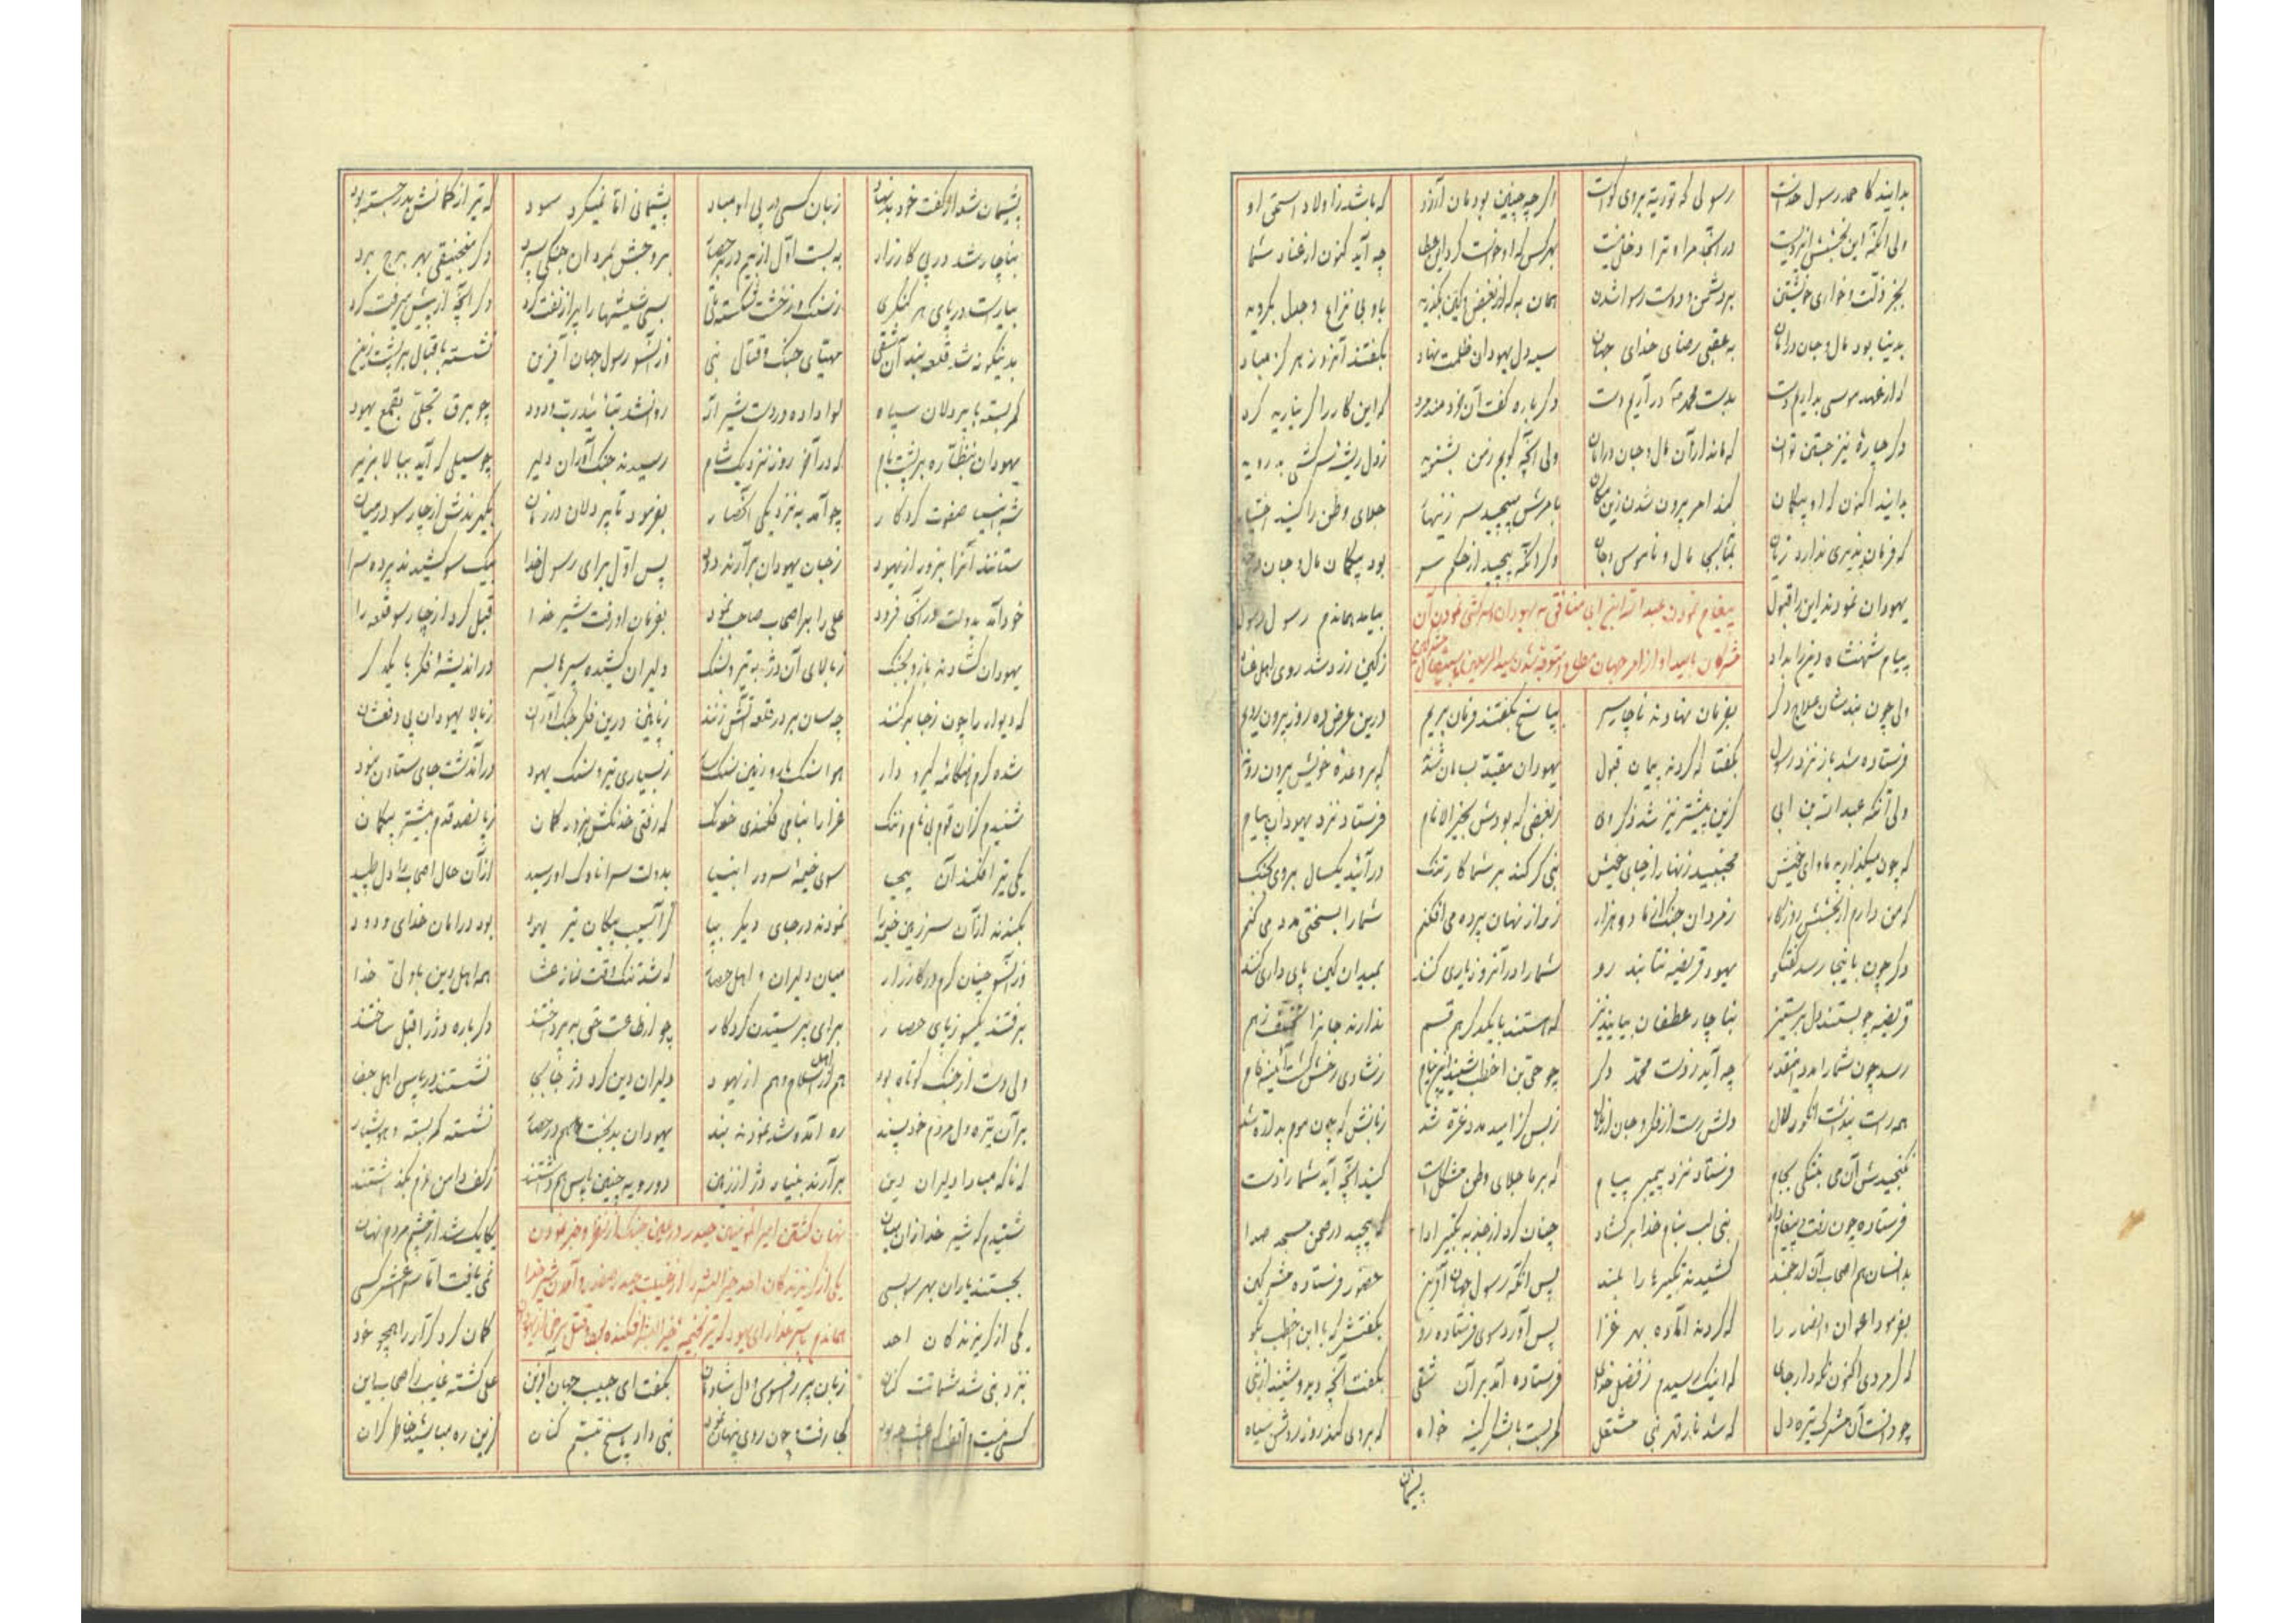 بدانید کاحمد رسول خداست رسولی که توریة بروی گواست اگرچه چنین بودمان آرزو که باشد ز اولاد اسحق او
ولی آنکه این بخشش ایزدیست در آنجا مرا و ترا دخل نیست بهرکس که او خواست کرد این عطا چه آید کنون از عناد شما
بجز ذلت و خواری خویشتن بر دشمن و دوست رسوا شدن همان به کزین بغض و کین بگذرید باو بی نزاع و جدل بگروید
بدنیا بود مال و جان در امان به عقبی رضای خدای جهان سیه دل یهودان ظلمت نهاد بگفتند آنروز هرگز مباد
که از عهد موسی بداریم دست بدست محمد در آریم دست دگرباره گفت آن خردمند مرد که این کار را گر نیارید کرد
دگر چاره نیز جستن توان که ماند از آن مال و جان در امان ولی آنچه گویم زمن بشنوید ز دل ریشه سرکشی بدروید
بدانید اکنون که او بیگمان کند امر بیرون شدن زین مکان بامرش مپیچید سر زینهار جلای وطن را کنید اختیار
که فرمان پذیری ندارد زیان مال و ناموس و جان وگر آنکه پیچید از حکم سر بود بیگمان مال و جان در
یهودان نمودند این را قبول پیغام نمودن عبدالله ابن ابی منافق به یهودان و سرکشی نمودن آن بیامد هماندم رسول رسول
پیام شهنشاه دین را بداد مشرکان بامید او از امر جهان مطاع و متوجه شدن سید المرسلین ز کین زرد شد روی اهل عناد
ولی چون نبدشان علاج دگر بفرمان نهادند ناچار سر بپاسخ بگفتند فرمان بریم درین عرض ده روز بیرون رویم
فرستاده شد باز نزد رسول بگفتا که کردند پیمان قبول یهودان مقید بسامان شدند که بر وعده خویش بیرون روند
ولی آنکه عبدالله بن ابی کزین پیشتر نیز شد ذکر وی ز بغضی که بودش بخیر الانام فرستاد نزد یهودان پیام
که چون میگذارید ماوای خویش مجنبید زنهار از جای خویش نبی گر کند بر شما کار تنگ درآئید یکسال بروی بجنگ
که من دارم از بخشش روزگار ز مردان جنگ آزما دو هزار ز راز نهان پرده می افکنم شما را بسختی مدد می کنم
دگر چون باینجا رسد گفتگو یهود قریضه نتابند رو شما را در آنروز یاری کنند بمیدان کین پای داری کنند
قریضه چو بستند دل بر ستیز بناچار غطفان بیایند نیز که هستند بایکدگر هم قسم ندارند جانرا ز هم
رسد چون شما را مدد اینقدر چه آید ز دست محمد دگر چو حی بن اخطب شنید این پیام ز شادی رخش گشت آئینه فام
همه راست پنداشت دلش رست از فکر و جان از ز بس کز امید مدد غره شد زبانش که چون موم بد ارّه شد
نگنجیدش آن می بجام فرستاد نزد پیمبر پیام که بر ما جلای وطن مشکل است کنید آنچه آید شما را ز دست
فرستاده چون رفت و پیغام داد نبی لب بنام خدا برگشاد چنان کرد از جذبه تکبیر ادا که پیچید در صحن مسجد صدا
بدانسان هم اصحاب آن ارجمند کشیدند تکبیرها را بلند پس آنگه رسول جهان آفرین حضور فرستاده مشرکین
بفرمود اعوان و انصار را که گردند آماده بهر غزا پس آورد سوی فرستاده رو بگفتش که با ابن اخطب بگو
که گر مردی اکنون نگه دار جای که اینک رسیدم ز فضل خدای فرستاده آمد بر آن شقی بگفت آنچه دید و شنید از نبی
چو دانست آن مشرک تیره دل که شد نار قهر نبی مشتعل کمر بست با لشکر کینه خواه که بروی کند روز روشن سیاه
پشیمان
پشیمان شد از گفت خود بد نهاد زبان کسی در پی او مباد پشیمانی اما نمیکرد سود که تیر از کمانش بدر جسته بود
بناچار شد در پی کارزار به بست اول از بیم در حصار بر و جش بمردان جنگی سپرد دگر منجنیقی بهر برج برد
بیاراست در پای هر کنگری ز سنگ و ز خشت شکسته بسی شیشها را پر از نفت کرد دگر آنچه از پیش میرفت کرد
بدینگونه شد قلعه بند آن شقی مهیای جنگ و قتال نبی وز آنسو رسول جهان آفرین نشسته باقبال بر پشت زین
کمر بسته با پردلان سپاه لوا داده در دست شیر اله روانشد بتائید رب ودود چو برق تجلی بقمع یهود
یهودان نظاره بر پشت بام که در آخر روز نزدیک شام رسیدند جنگ آوران دلیر چو سیلی که آید ز بالا بزیر
شه انبیا صفوت کردگار چو آمد به نزدیکی آنحصار بفرمود تا پردلان در زمان بگیرندش از چار سو در میان
ستانند آنرا بزور از یهود ز جان یهودان برآرند دود پس اول برای رسول خدا بیک سو کشیدند پرده سرا
خود آمد بدولت در آنجا فرود علی را بر اصحاب صاحب نمود بفرمان او رفت شیر خدا قبل کرد از چار سو قلعه را
یهودان گشادند بازو بجنگ ز بالای آن دژ به تیر و بسنگ دلیران کشیده سپرها بسر در اندیشه و فکر با یکدگر
که دیوار را چون ز جا برکنند چه سان بر در قلعه آتش زنند زپائین درین فکر جنگ آوران ز بالا یهودان پی دفعشان
شده گرم هنگامه گیرو دار هوا سنگ بار و زمین سنگ سار ز بسیاری تیر و سنگ یهود در آندشت جای ستادن نبود
شنیدم کزان قوم بی نام و ننگ فکندی خدنگ که رفتی خدنگش بزور کمان ز پانصد قدم بیشتر بیگمان
یکی تیر افکند آن بیحیا سوی خیمه سرور انبیا بدولت سرا ناوک او رسید از آن حال اصحاب را دل طپید
بکندند از آن سرزمین خیمه را نمودند در جای دیگر بپا کز آسیب پیکان تیر یهود بود در امان خدای ودود
وز آنسو چنان گرم در کارزار میان دلیران و اهل حصار که شد تنگ وقت نماز عشا همه اهل دین با ولی خدا
برفتند یکسو ز پای حصار برای پرستیدن کردگار چو از طاعت حق به پرداختند دگرباره دژ را قبل ساختند
ولی دست از جنگ کوتاه بود هم از اهل اسلام و هم از یهود دلیران دین گرد دژ جابجا نشستند در پاس اهل جفا
بر آن تیره دل مردم خود پسند ره آمد و شد نمودند بند یهودان بدبخت هم در حصار نشسته کمر بسته و هوشیار
که ناگه مبادا دلیران دین برآرند بنیاد دژ از زمین دو رویه چنین پاس هم داشتند ز کف دامن عزم نگذاشتند
شنیدم که شیر خدا زان میان نهان گشتن امیر المومنین حیدر در عین جنگ از نظر و خبر نمودن یکایک شد از چشم مردم نهان
بجستند یاران بهر سو بسی یکی از گریزندگان احد خیر البشر را از غیبت حیدر صفدر و آمدن شیر خدا نمی یافت اما سراغش کسی
یکی از گریزندگان احد هماندم با سر جدار ای یهود که تیر بخیمه خیر البشر افکنده بود گمان کرد کرار را همچو خود
بنزد نبی شد شماتت کنان زبان پر ز افسوس و دل شادمان بگفت ای حبیب جهان آفرین علی گشته غایب ز اصحاب دین
کسی نیست واقف کجا رفت و چون روی پنهان نمود نبی داد پاسخ تبسم کنان کزین ره مباشید خاطر گران